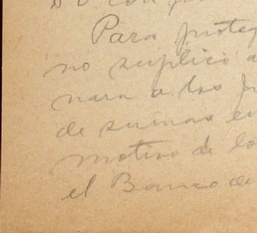 Para proteg
no suplico a
nara a los
de sumas en
motivo de lo
el Banco de